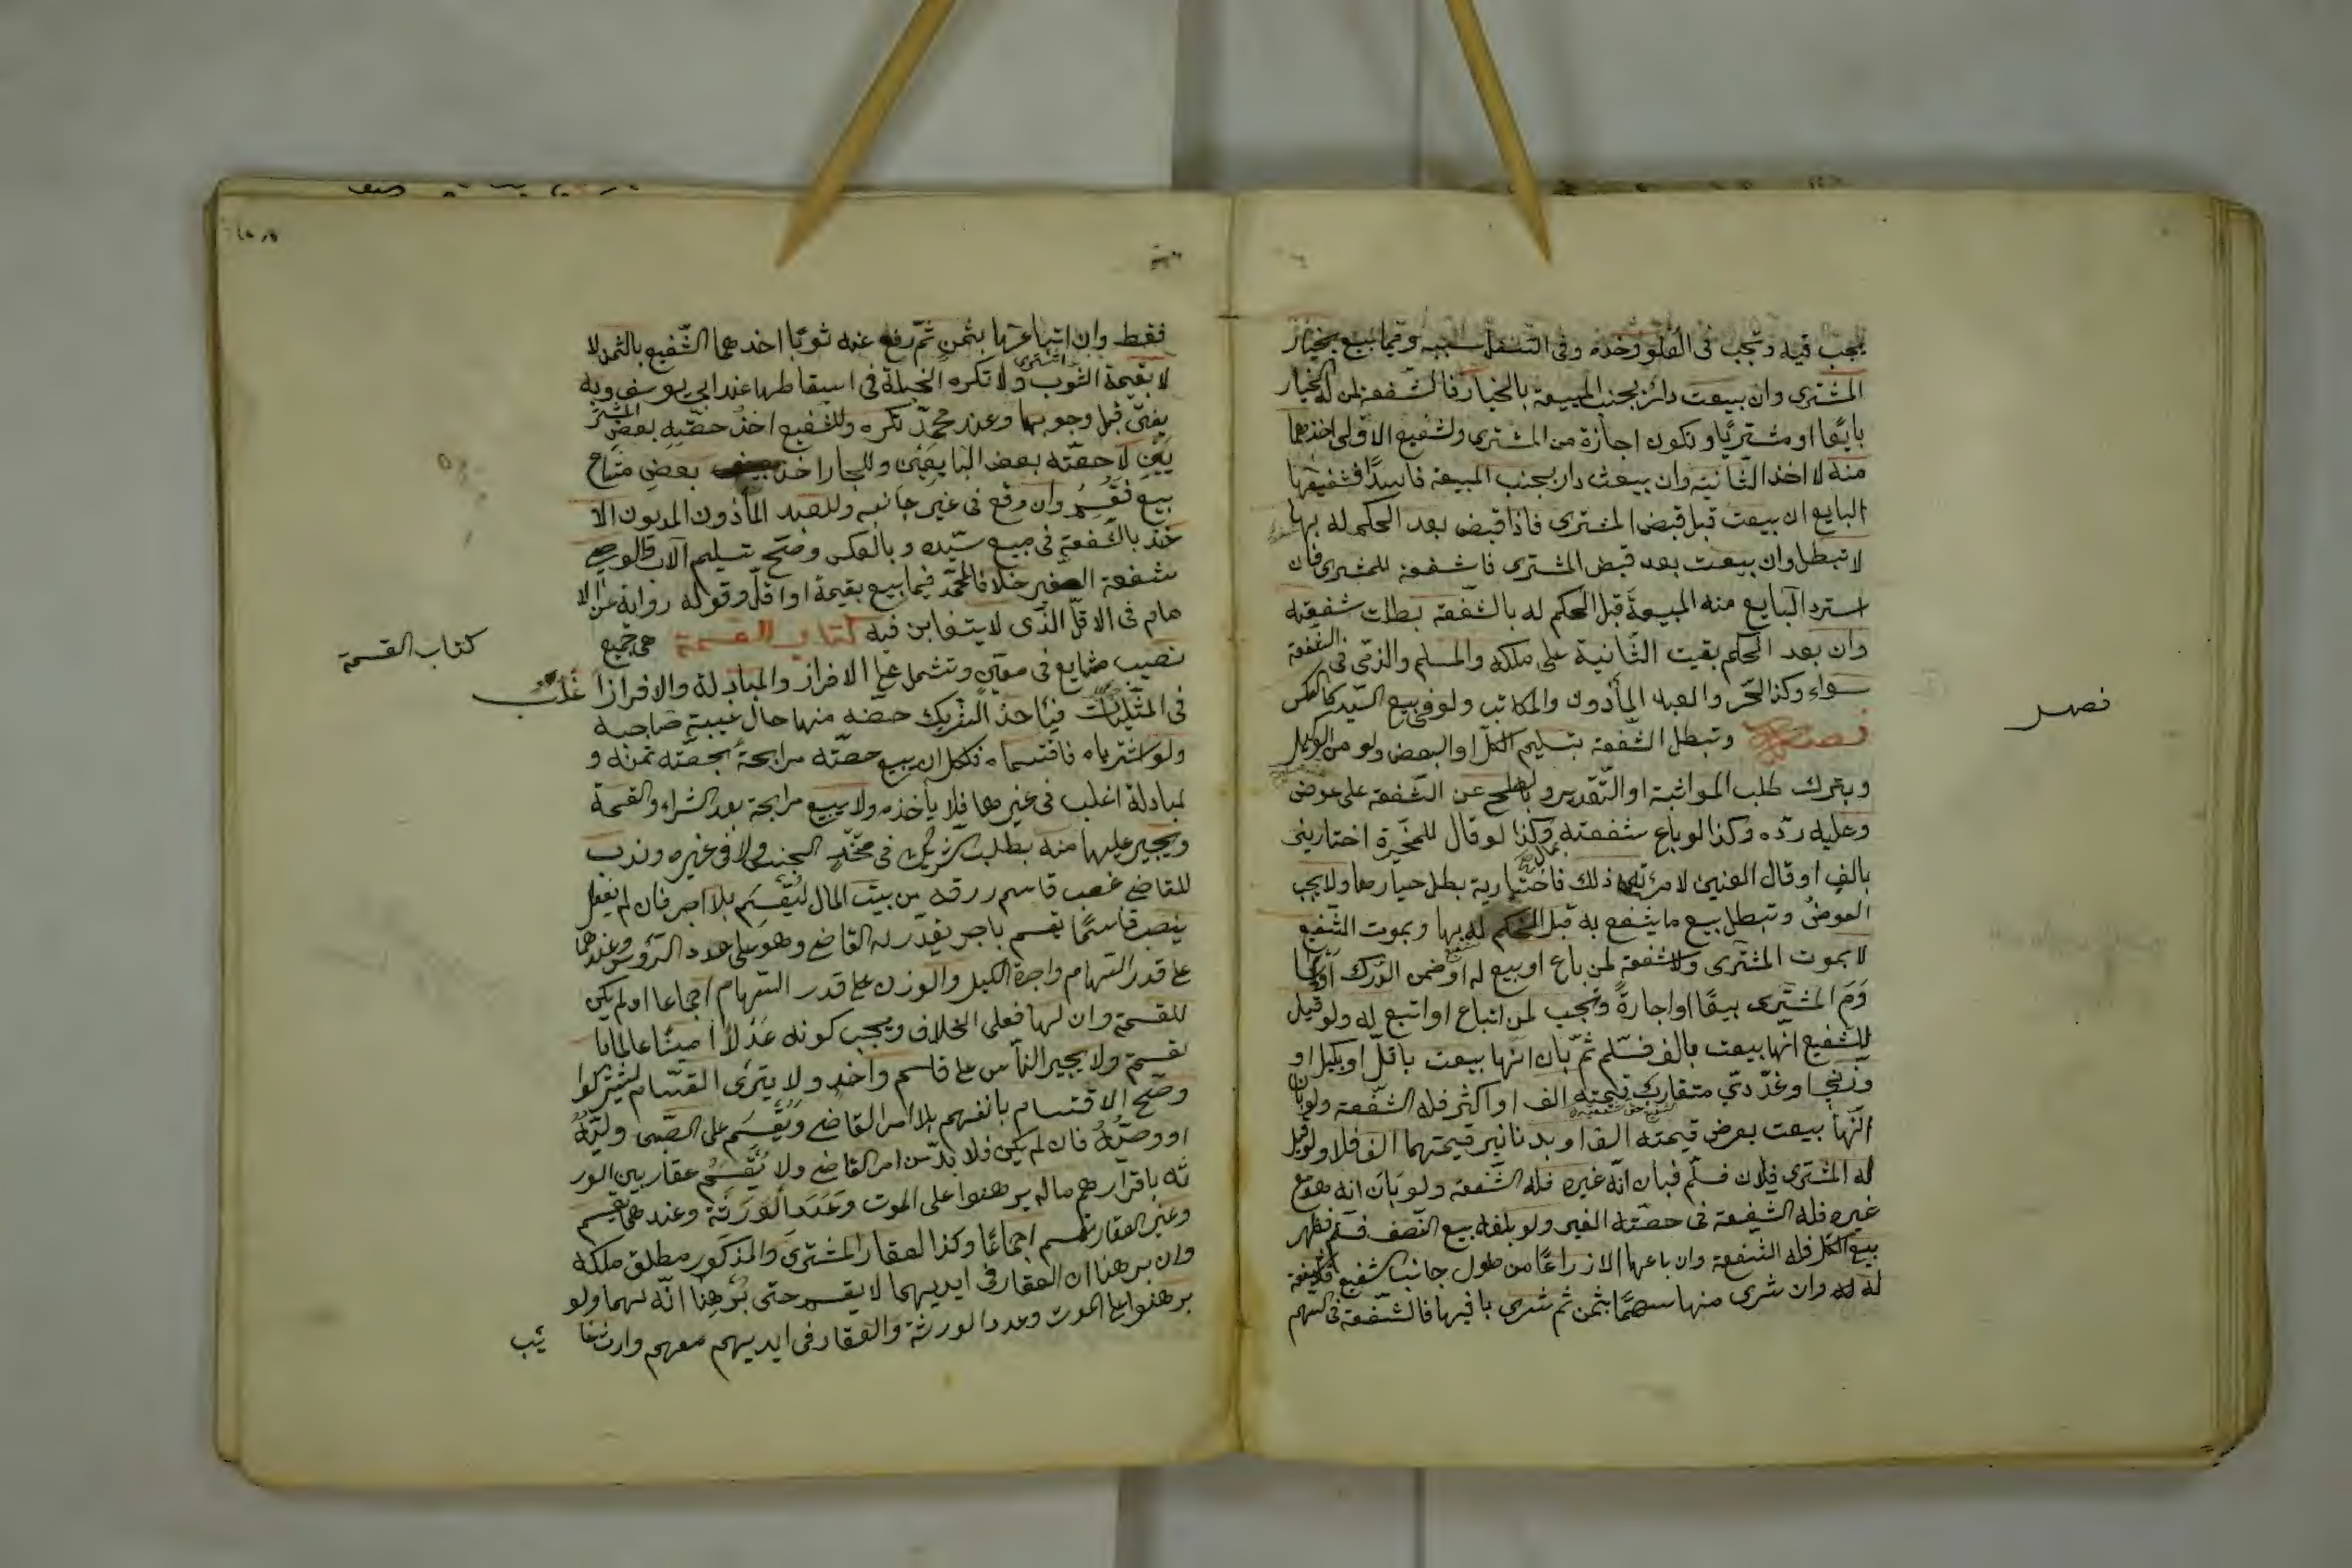 يجب فيه وتجب في العلو وحده وفى السفل بسببه وفيما بيع بخيار
المشترى وان بيعت دار بجنب المبيعة بالخيار فالشفعة لمن له الخيار
بايعا او مشتريا وتكون اجازة من المشترى ولشفيع الاولى اخذها
منه لا اخذ الثانية وان بيعت دار بجنب المبيعة فاسدا فشفيعها
البايع ان بيعت قبل قبض المشترى فاذا قبض بعد الحكم له بها
لا تبطل وان بيعت بعد قبض المشترى فاشفعة للمشترى فان
استرد البايع منه المبيعة قبل الحكم له بالشفعة بطلت شفعته
وان بعد الحكم بقيت الثانية على ملكه والمسلم والذمى فى الشفعة
سواء وكذا الحر والعبد المأذون والمكاتب ولو فى بيع السيد كالعكس
فصل وتبطل الشفعة بتسليم الكل او البعض ولو من الوكيل
فصل
وبترك طلب المواثبة او التقدير وبالصلح عن الشفعة على عوض
وعليه رده وكذا لو باع شفعته بمال وكذا لو قال للمخيرة اختارينى
بالف او قال العنين لامرأته ذلك فاختارته بطل خيارها ولا يجب
العوض وتبطل ببيع ما يشفع به قبل الحكم له بها وبموت الشفيع
لا بموت المشترى ولا شفعة لمن باع او بيع له او ضمن الدرك او سا
وم المشترى بيعا او اجارة وتجب لمن ابتاع او ابتيع له ولو قيل
للشفيع انها بيعت بالف فسلم ثم بان انها بيعت باقل او بكيلى او
وزنى او عددى متقارب قيمته الف او اكثر فله الشفعة ولو بان
انها بيعت بعرض قيمته الف او بدنانير قيمتها الف فلا ولو قيل
له المشترى فلان فسلم فبان انه غيره فله الشفعة ولو بان انه هو مع
غيره فله الشفعة فى حصته الغير ولو بلغه بيع النصف فسلم فظهر
بيع الكل فله الشفعة وان باعها الا ذراعا من طول جانب الشفيع فلا شفعة
له وان شرى منها سهما بثمن ثم شرى باقيها فالشفعة فى السهم
فقط وان ابتاعها بثمن ثم دفع عنه ثوبا اخذها الشفيع بالثمن لا
لا بقيمة الثوب ولا تكره الحيلة فى اسقاطها عند ابى يوسف وبه
يفتى قبل وجوبها وعند محمد تكره وللشفيع اخذ حصة بعض المشتر
يين لا حصة بعض البايعين وللجار اخذ بعض متاع
بيع فقسم وان وقع فى غير جانبه وللعبد المأذون المديون الا
خذ بالشفعة فى مبيع سيده وبالعكس وصح تسليم الاب والوصى
شفعة الصغير خلافا لمحمد فيما بيع بقيمة او اقل وقوله رواية عن الا
مام فى الاقل الذى لا يتغابن فيه كتاب القسمة هى جمع
كتاب القسمة
نصيب شايع فى معين وتشمل على الافراز والمبادلة والافراز اغلب
فى المثليات فيأخذ الشريك حصه منها حال غيبة صاحبه
ولو اشترياه فاقتسماه فلكل ان يبيع حصته مرابحة بحصته ثمنه و
لمبادلة اغلب فى غيرها فلا يأخذه ولا يبيع مرابحة بعد الشراء والقسمة
ويجبر عليها منه بطلب الشريك فى متحد الجنس ولا فى غيره وندب
للقاضى نصب قاسم رزقه من بيت المال ليقسم بلا اجر فان لم يفعل
ينصب قاسما يقسم باجر يقدر له القاضى وهو على عدد الرؤس وعندهما
على قدر السهام واجرة الكيل والوزن على قدر السهام اجماعا ان لم يكن
للقسمة وان لها فعلى الخلاف ويجب كونه عدلا امينا عالما با
لقسمة ولا يجبر الناس على قاسم واحد ولا يترك القسام ليشتركوا
وصح الاقتسام بانفسهم بلا امر القاضى ويقسم على الصبى وليه
او وصيه فان لم يكن فلا بد من امر القاضى ولا يقسم عقار بين الور
ثة باقرارهم ما لم يبرهنوا على الموت وعدد الورثة وعندهما يقسم
وغير العقار يقسم اجماعا وكذا العقار المشترى والمذكور مطلق ملكه
وان برهنا ان العقار فى ايديهما لا يقسم حتى يبرهنا انه لهما ولو
برهنوا على الموت وعدد الورثة والعقار فى ايديهم معهم وارث غا
ئب